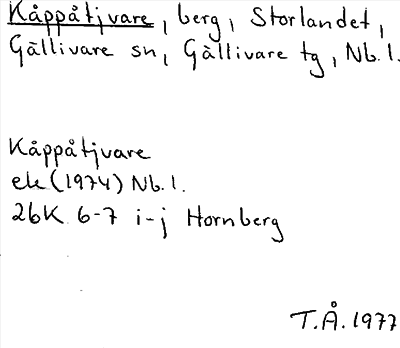 Kåppåtjvare, berg, Storlandet,
Gällivare sn, Gällivare tg, Nb.l.
Kåppåtjvare
ek (1974) Nb.l.
26K 6-7 i-j Hornberg
T.Å. 1977